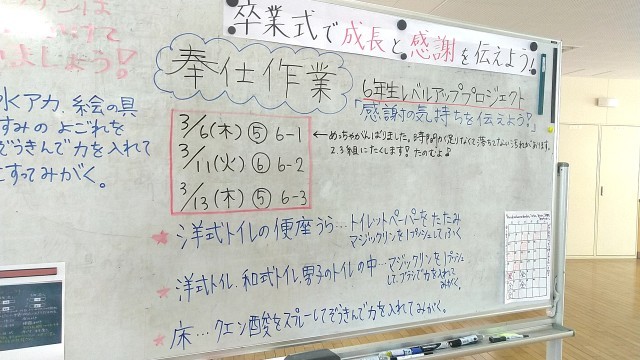 卒業式で成長と感謝を伝えよう!
奉仕作業
6年生レベルアッププロジェクト
「感謝の気持ちを伝えよう!」
3/6(木) ⑤ 6-1
←めっちゃがんばりました。時間が足りなくて落ちてない汚れがあります。
2.3組にたくします! たのむよ!
3/11(火) ⑥ 6-2
3/13(木) ⑤ 6-3
水アカ、絵の具
すみのよごれを
ぞうきんで力を入れて
こすってみがく。
★洋式トイレの便座うら…トイレットペーパーをたたみ
マジックリンを1プッシュしてふく
★洋式トイレ、和式トイレ、男子のトイレの中…マジックリンを1プッシュ
して、ブラシで力を入れて
みがく。
★床…クエン酸をスプレーしてぞうきんで力を入れてみがく。